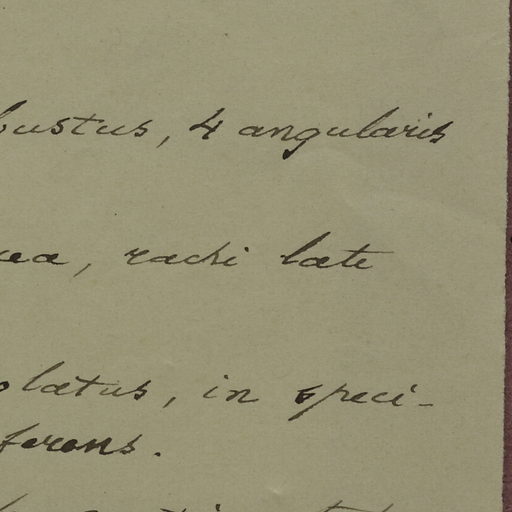 bustus, 4 angularis
cea, rachi late
olatus, in speci-
ferens.